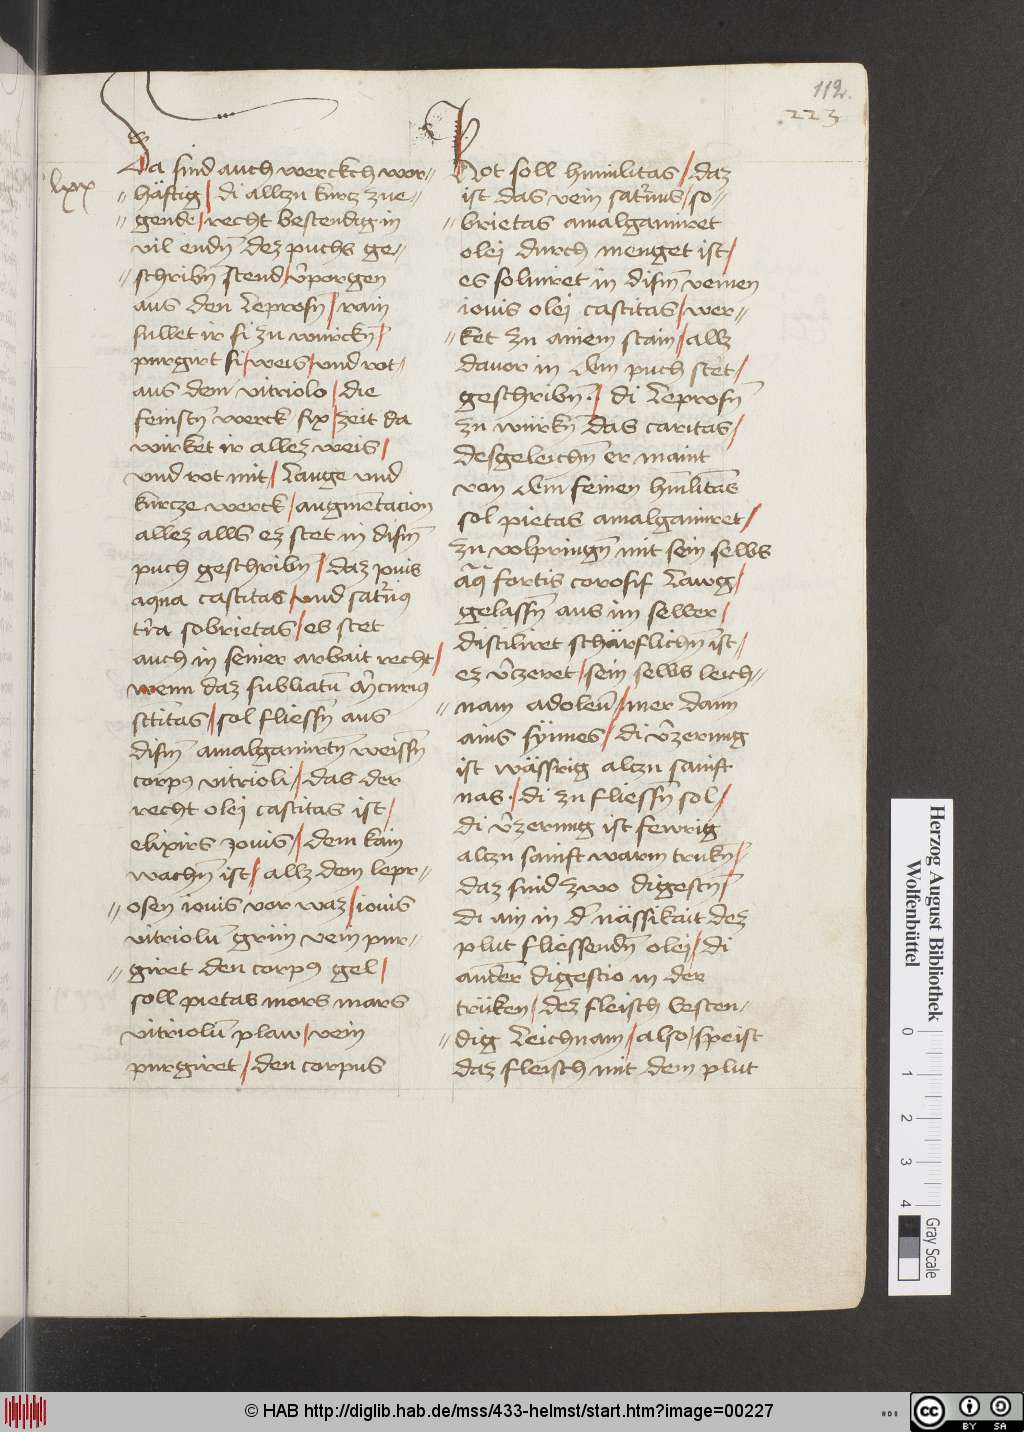 112.
223
lxx
Da sind auch werckch wor//
//häftig / di allzu kurcz zue//
//gende / recht bestendig in
vil endn̄ dez puchs ge//
//schribn̄ stend / v̄porgen
aus den Leprosn̄ / rain
sullet ir si zu würckn̄ /
purgirt si / weis / vnd rot /
aus dem vitriolo / die
feinstn̄ werck fix / zeit da
wirket ir allez weis /
vnd rot mit / Lange vnd
kurcze werck / augmētacion
allez alls ez stet in dism̄
puch geschribn̄ / daz jouis
aqua castitas / vnd sat'nꝰ
t'ra sobrietas / es stet
auch in seiner arbait recht /
wenn daz subliatū m̄curiꝰ
sctītas / sol fliessn̄ aus
dism̄ amalgamirtn̄ weissn̄
corpꝰ vitrioli / das der
recht olej castitas ist /
elixirs jouis / dem kain
wachn̄ ist / allz dem lepr//
//osen iouis vor waz / iouis
vitriolū grün vein pur//
//giret den corpꝰ gel /
soll pietas mors mars
vitriolū plaw / vein
purgiret / den corpus
Rot soll humilitas / daz
ist das vein sat'nus / so//
//brietas amalgamiret
olej durch menget ist /
es soluiret in dism̄ veinen
iouis olej castitas / wer//
//ket zu ainem stain / allz
dauor in dem puch stet /
geschribn̄ . / di Leprosn̄
zu würkn̄ das caritas /
desgeleichn̄ er maint
von dem feinen hūilitas
sol pietas amalgamiret /
zu volpringn̄ mit sein selbs
aq̄ fortis corosif Lawg /
gelassn̄ aus im selber /
distiliret schärflichn̄ ist /
ez v̄czeret / sein selbs leich//
//nam adoleū / mer dann
ains sÿnnes / di v̄zerung
ist wässrig alczu sanft
nas . / di zu fliessn̄ sol /
di v̄zerung ist fewrig
alczu sanft warm trukn̄ /
daz sind zwo digestn̄
di ain in d̄ nässikait dez
plut fliessendn̄ olej / di
ander digestio in der
trüken / dez fleisch besten//
//dig Leichnam / also / speist
daz fleisch mit dem plut
Herzog August Bibliothek
Wolfenbüttel
0 1 2 3 4
Gray Scale
© HAB http://diglib.hab.de/mss/433-helmst/start.htm?image=00227
HAB
cc
BY SA